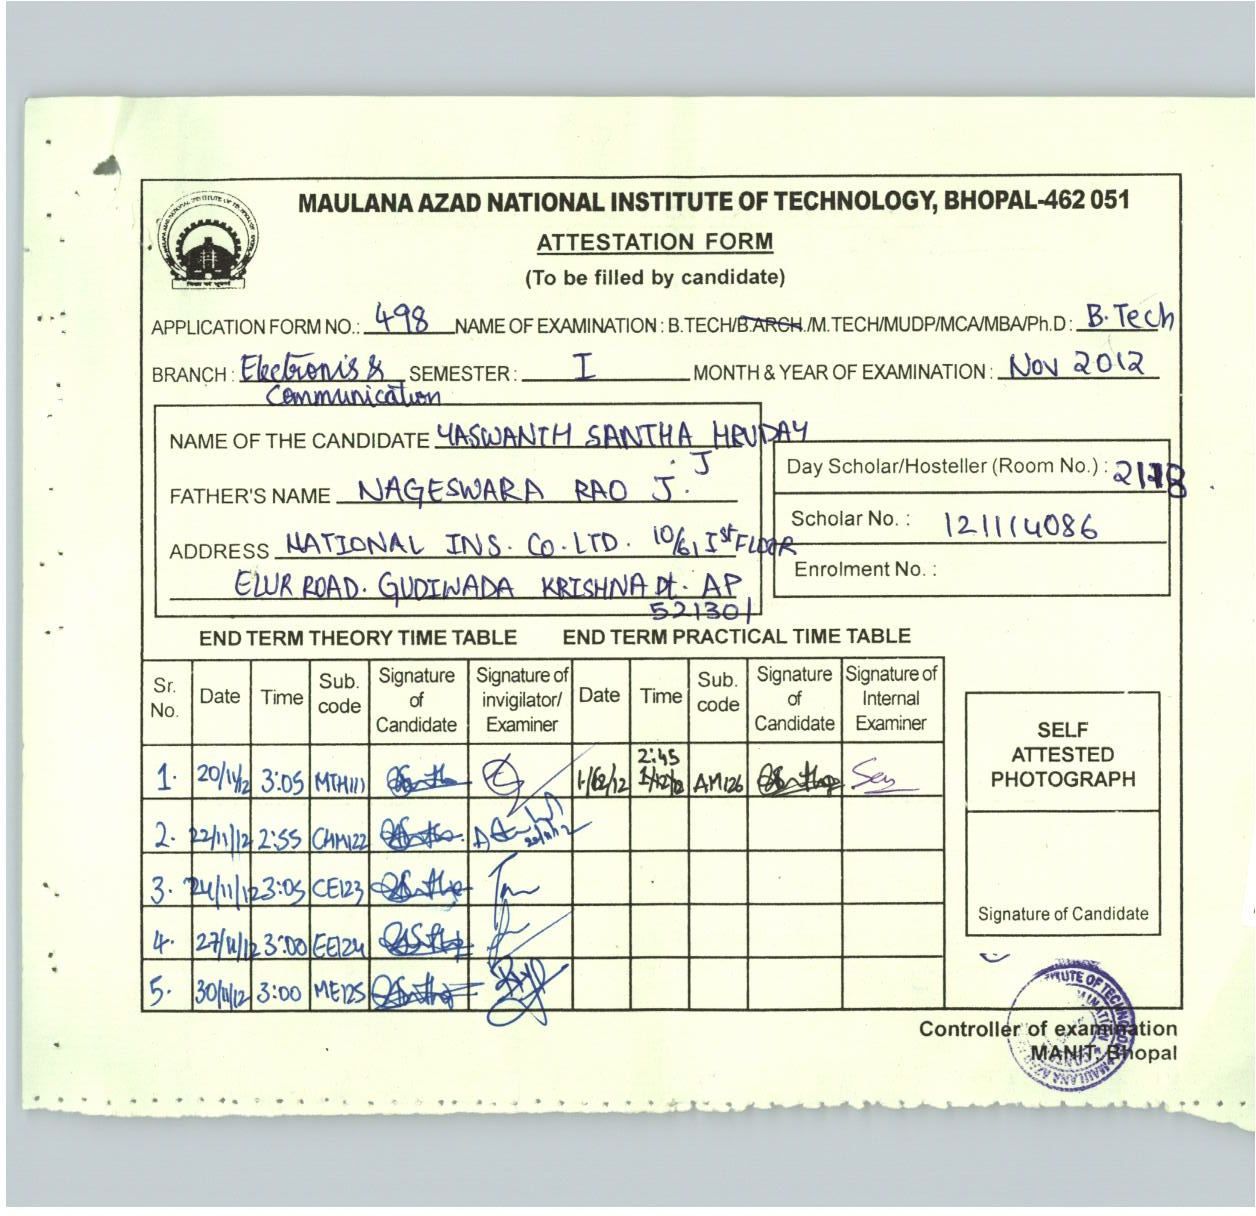 MAULANA AZAD NATIONAL INSTITUTE OF TECHNOLOGY, BHOPAL-462 051
ATTESTATION FORM
(To be filled by candidate)
APPLICATION FORM NO.: 498 NAME OF EXAMINATION : B.TECH/B.ARCH./M.TECH/MUDP/MCA/MBA/Ph.D : B.Tech
BRANCH : Electronis & SEMESTER : I MONTH & YEAR OF EXAMINATION : Nov 2012
Communication
NAME OF THE CANDIDATE YASWANTH SANTHA HRUDAY
J
FATHER'S NAME NAGESWARA RAO J.
ADDRESS NATIONAL INS. Co. LTD. 10/6, Ist FLOOR
ELUR ROAD. GUDIWADA KRISHNA Dt. AP
521301
Day Scholar/Hosteller (Room No.) :
Scholar No. : 121114086
Enrolment No. :
END TERM THEORY TIME TABLE END TERM PRACTICAL TIME TABLE
Sr. No. Date Time Sub. code Signature of Candidate Signature of invigilator/ Examiner Date Time Sub. code Signature of Candidate Signature of Internal Examiner
1. 20/11/12 3:05 MTH111 1/12/12 2:45 1/12/12 AM126
2. 22/11/12 2:55 CHM122 22/11/12
3. 24/11/12 3:05 CE123
4. 27/11/12 3:00 EE124
5. 30/11/12 3:00 ME125
SELF
ATTESTED
PHOTOGRAPH
Signature of Candidate
Controller of examination
MANIT, Bhopal